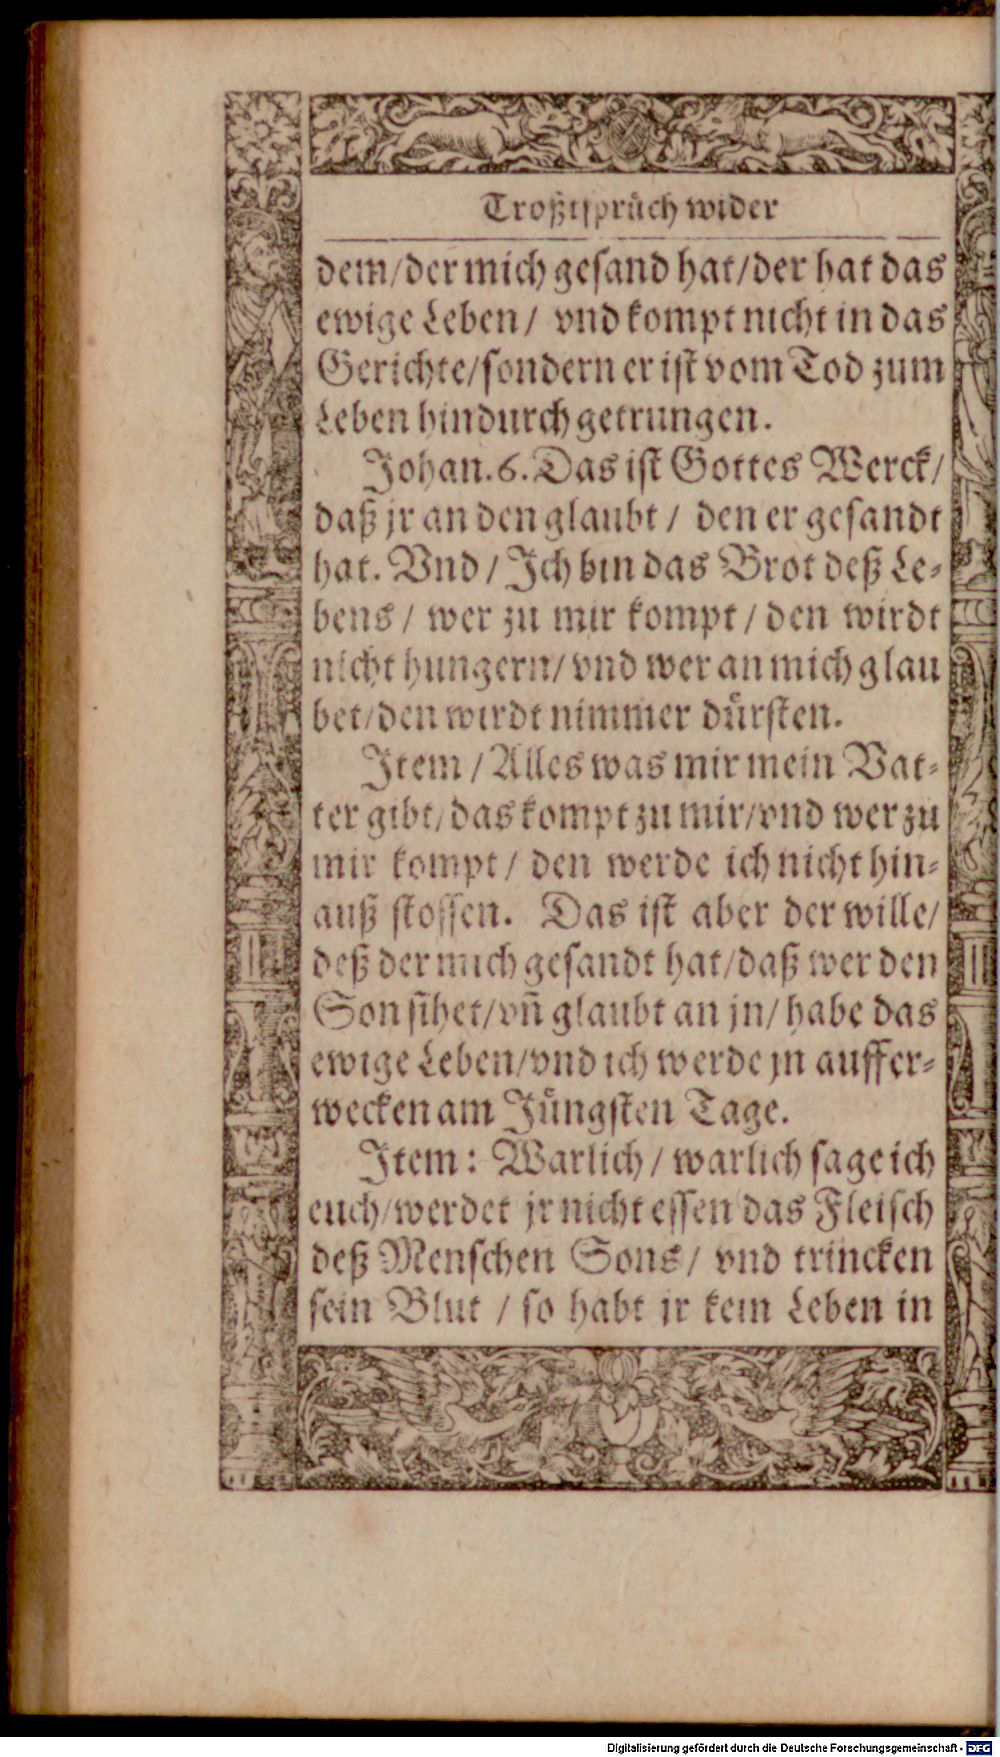 Troßtsprüch wider
dem/der mich gesand hat/der hat das
ewige Leben/ vnd kompt nicht in das
Gerichte/sondern er ist vom Tod zum
Leben hindurch getrungen.
Johan. 6. Das ist Gottes Werck/
daß jr an den glaubt / den er gesandt
hat. Vnd / Ich bin das Brot deß Le-
bens / wer zu mir kompt / den wirdt
nicht hungern/ vnd wer an mich glau
bet/den wirdt nimmer dürsten.
Item / Alles was mir mein Vat-
ter gibt/das kompt zu mir/vnd wer zu
mir kompt / den werde ich nicht hin-
auß stossen. Das ist aber der wille/
deß der mich gesandt hat/daß wer den
Son sihet/vñ glaubt an jn/ habe das
ewige Leben/vnd ich werde jn auffer-
wecken am Jüngsten Tage.
Item: Warlich / warlich sage ich
euch/werdet jr nicht essen das Fleisch
deß Menschen Sons / vnd trincken
sein Blut / so habt jr kein Leben in
Digitalisierung gefördert durch die Deutsche Forschungsgemeinschaft - DFG